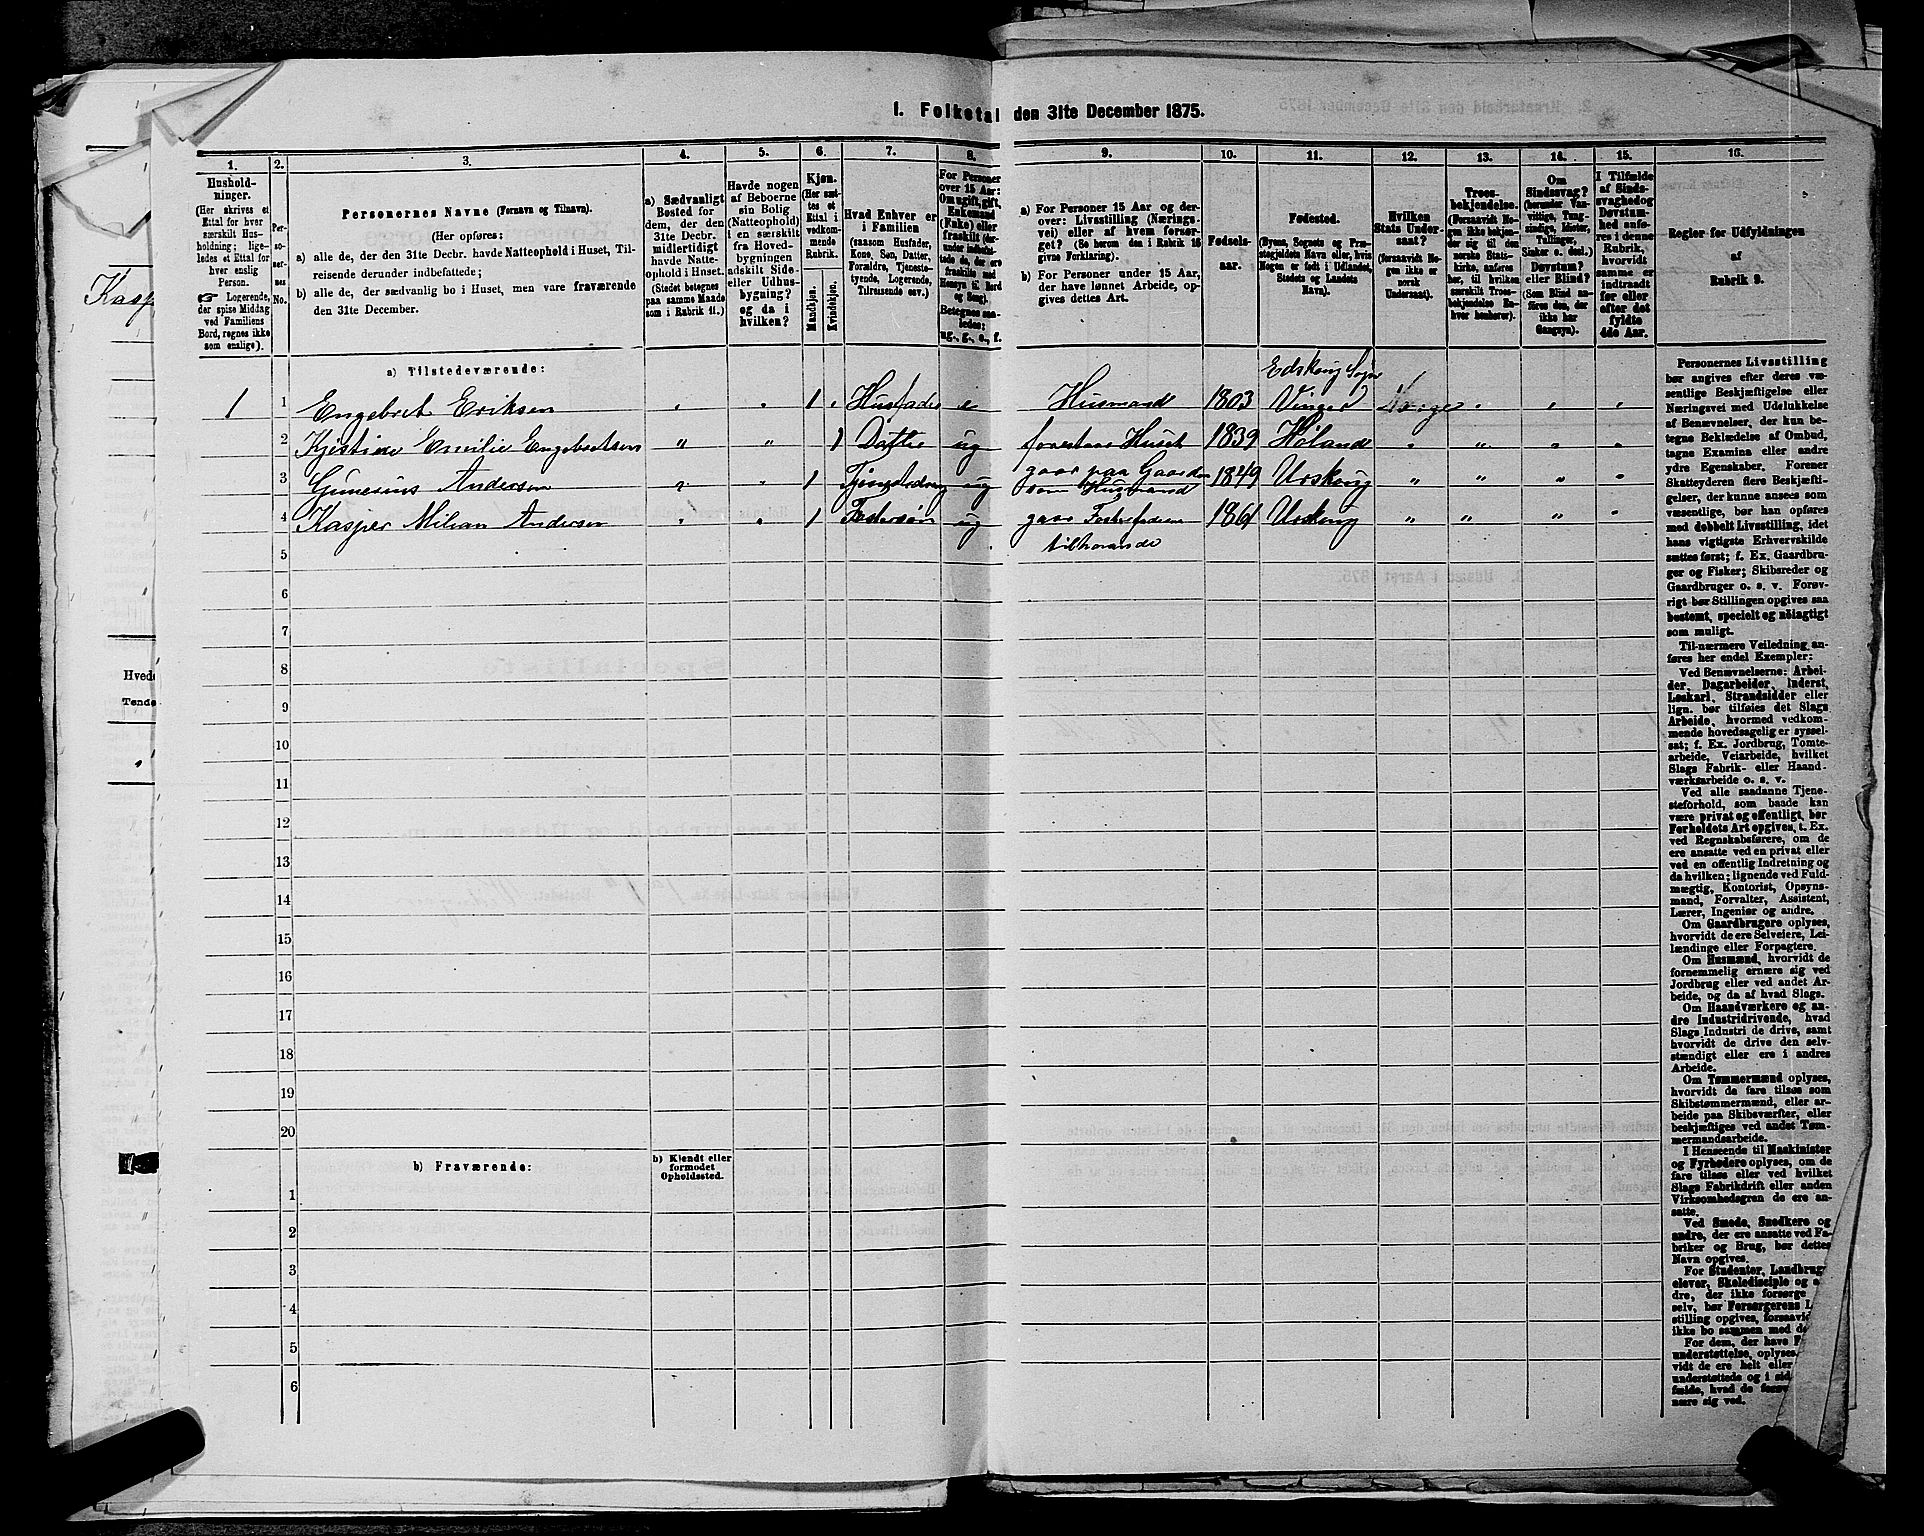 1. Folketal den 31te December 1875.
1. 2. 3. 4. 5. 6. 7. 8. 9. 10. 11. 12. 13. 14. 15. 16.
Hushold-
ninger.
(Her skrives et
Ettal for hver
særskilt Hus-
holdning; lige-
ledes et Ettal for
hver enslig
Person.
☞ Logerende,
der spise Middag
ved Familiens
Bord, regnes ikke
som enslige).
Per-
so-
ner-
nes
No.
Personernes Navne (Fornavn og Tilnavn).
(Her opføres:
a) alle de, der den 31te Decbr. havde Natteophold i Huset, Til-
reisende derunder indbefattede;
b) alle de, der sædvanlig bo i Huset, men vare fraværende
den 31te December.
a) Sædvanligt
Bosted for
dem, der den
31te Decbr.
midlertidigt
havde Natte-
ophold i Huset.
(Stedet betegnes
paa samme Maade
som i Rubrik 11.)
Havde nogen
af Beboerne
sin Bolig
(Natteophold)
i en særskilt
fra Hoved-
bygningen
adskilt Side-
eller Udhus-
bygning?
og da i
hvilken?
Kjøn.
(Her sæt-
tes et
Ettal i
vedkom-
mende
Rubrik.
Mandkjøn.
Kvindekjøn.
Hvad Enhver er
i Familien
(saasom Husfader,
Kone, Søn, Datter,
Forældre, Tjeneste-
tyende, Logerende,
Tilreisende osv.)
For Personer
over 15 Aar:
Om ugift, gift,
Enkemand
(Enke) eller
fraskilt
Betegnes saa-
ledes:
ug., g., e., f.
a) For Personer 15 Aar og der-
over: Livsstilling (Nærings-
vei) eller af hvem forsør-
get? (Se herom den i Rubrik 16
givne Forklaring).
b) For Personer under 15 Aar,
der have lønnet Arbeide, op-
gives dettes Art.
Fødsels-
aar.
Fødested.
(Byens, Sognets og Præ-
stegjeldets Navn eller, hvis
Nogen er født i Udlandet,
Stedets og Landets
Navn).
Hvilken
Stats Under-
saat?
(forsaavidt No-
gen ikke er
norsk
Undersaat).
Troes-
bekjendelse.
(Forsaavidt No-
gen ikke bekjen-
der sig til den
norske Stats-
kirke, anføres
her, til hvilken
særskilt Troes-
bekjendelse En-
hver henhører).
Om
Sindssvag?
(herunder Van-
vittige, Tung-
sindige, Idioter,
Tullinger,
Sinker o. desl.)
Døvstum?
eller Blind?
(Som Blind an-
føres den, der
ikke har
Gangsyn).
I Tilfælde
af Sinds-
svaghed og
Døvstum-
hed anfø-
res i denne
Rubrik,
hvorvidt
samme er
indtraadt
før eller
efter det
fyldte
4de Aar.
Regler for Udfyldningen
af
Rubrik 9.
a) Tilstedeværende:
Edskoug Sogn
1 1 Engebret Eriksen 1 Husfader e Husmand 1803 Vinger Norge
2 Kjestine Emilie Engebretsen " " 1 Datter ug forestaar Huset 1839 Høland
3 Gunerius Andersen 1 ug gaar paa Gaarden 1849 Urskoug
som Husmand
4 Kasper Milian Andersen 1 Fostersøn ug gaar Fosterfaderen 1861 Urskoug
tilhaande
5
6
7
8
9
10
11
12
13
14
15
16
17
18
19
20
b) Fraværende:
b) Kjendt eller
formodet
Opholdssted.
1
2
3
4
5
6
Personernes Livsstilling
bør angives efter deres væ-
sentlige Beskjæftigelse eller
Næringsvei med Udelukkelse
af Benævnelser, der kun be-
tegne Beklædelse af Ombud,
tagne Examina eller andre
ydre Egenskaber. Forener
Skatteyderen flere Beskjæfti-
gelser, der kunne ansees som
væsentlige, bør han opføres
med dobbelt Livsstilling, idet
hans vigtigste Erhvervskilde
sættes først; f. Ex. Gaardbru-
ger og Fisker; Skibsreder og
Gaardbruger o. s. v. Forøv-
rigt bør Stillingen opgives saa
bestemt, specielt og nøiagtigt
som muligt.
Til nærmere Veiledning an-
føres her endel Exempler:
Ved Benævnelserne: Arbei-
der, Dagarbeider, Inderst,
Løskarl, Strandsidder eller
lign. bør tilføies det Slags
Arbeide, hvormed vedkom-
mende hovedsagelig er syssel-
sat; f. Ex. Jordbrug, Tomte-
arbeide, Veiarbeide, hvilket
Slags Fabrik- eller Haand-
værksarbeide o. s. v.
Ved alle saadanne Tjene-
steforhold, som baade kan
være privat og offentligt, bør
Forholdets Art opgives, t. Ex.
ved Regnskabsførere, om de
ere ansatte ved en privat eller
ved en offentlig Indretning og
da hvilken; lignende ved Fuld-
mægtig, Kontorist, Opsyns-
mand, Forvalter, Assistent,
Lærer, Ingeniør og andre.
Om Gaardbrugere oplyses,
hvorvidt de ere Selveiere, Lei-
lændinge eller Forpagtere.
Om Husmænd, hvorvidt de
fornemmelig ernære sig ved
Jordbrug eller ved andet Ar-
beide, og da af hvad Slags.
Om Haandværkere og an-
dre Industridrivende, hvad
Slags Industri de drive, samt
hvorvidt de drive den selv-
stændigt eller ere i andres
Arbeide.
Om Tømmermænd oplyses,
hvorvidt de fare tilsøs som
Skibstømmermænd, eller ar-
beide paa Skibsværfter, eller
beskjæftiges ved andet Tøm-
mermandsarbeide.
I Henseende til Maskinister
og Fyrbødere oplyses, om de
fare tilsøs eller ved hvilket
Slags Fabrikdrift eller anden
Virksomhedsgren de ere an-
satte.
Ved Smede, Snedkere og
andre, der ere ansatte ved Fa-
briker og Brug, bør dettes
Navn opgives.
For Studenter, Landbrugs-
elever, Skoledisciple og
dre, der ikke forsørge
selv, bør Forsørgerens
stilling opgives, forsaavid
ikke bo sammen med
For dem, der have
understøttelse, oplyses
vidt de ere helt eller
understøttede og i
fælde, hvad de
nære sig ved.
Kasp
Hvede
Tønde